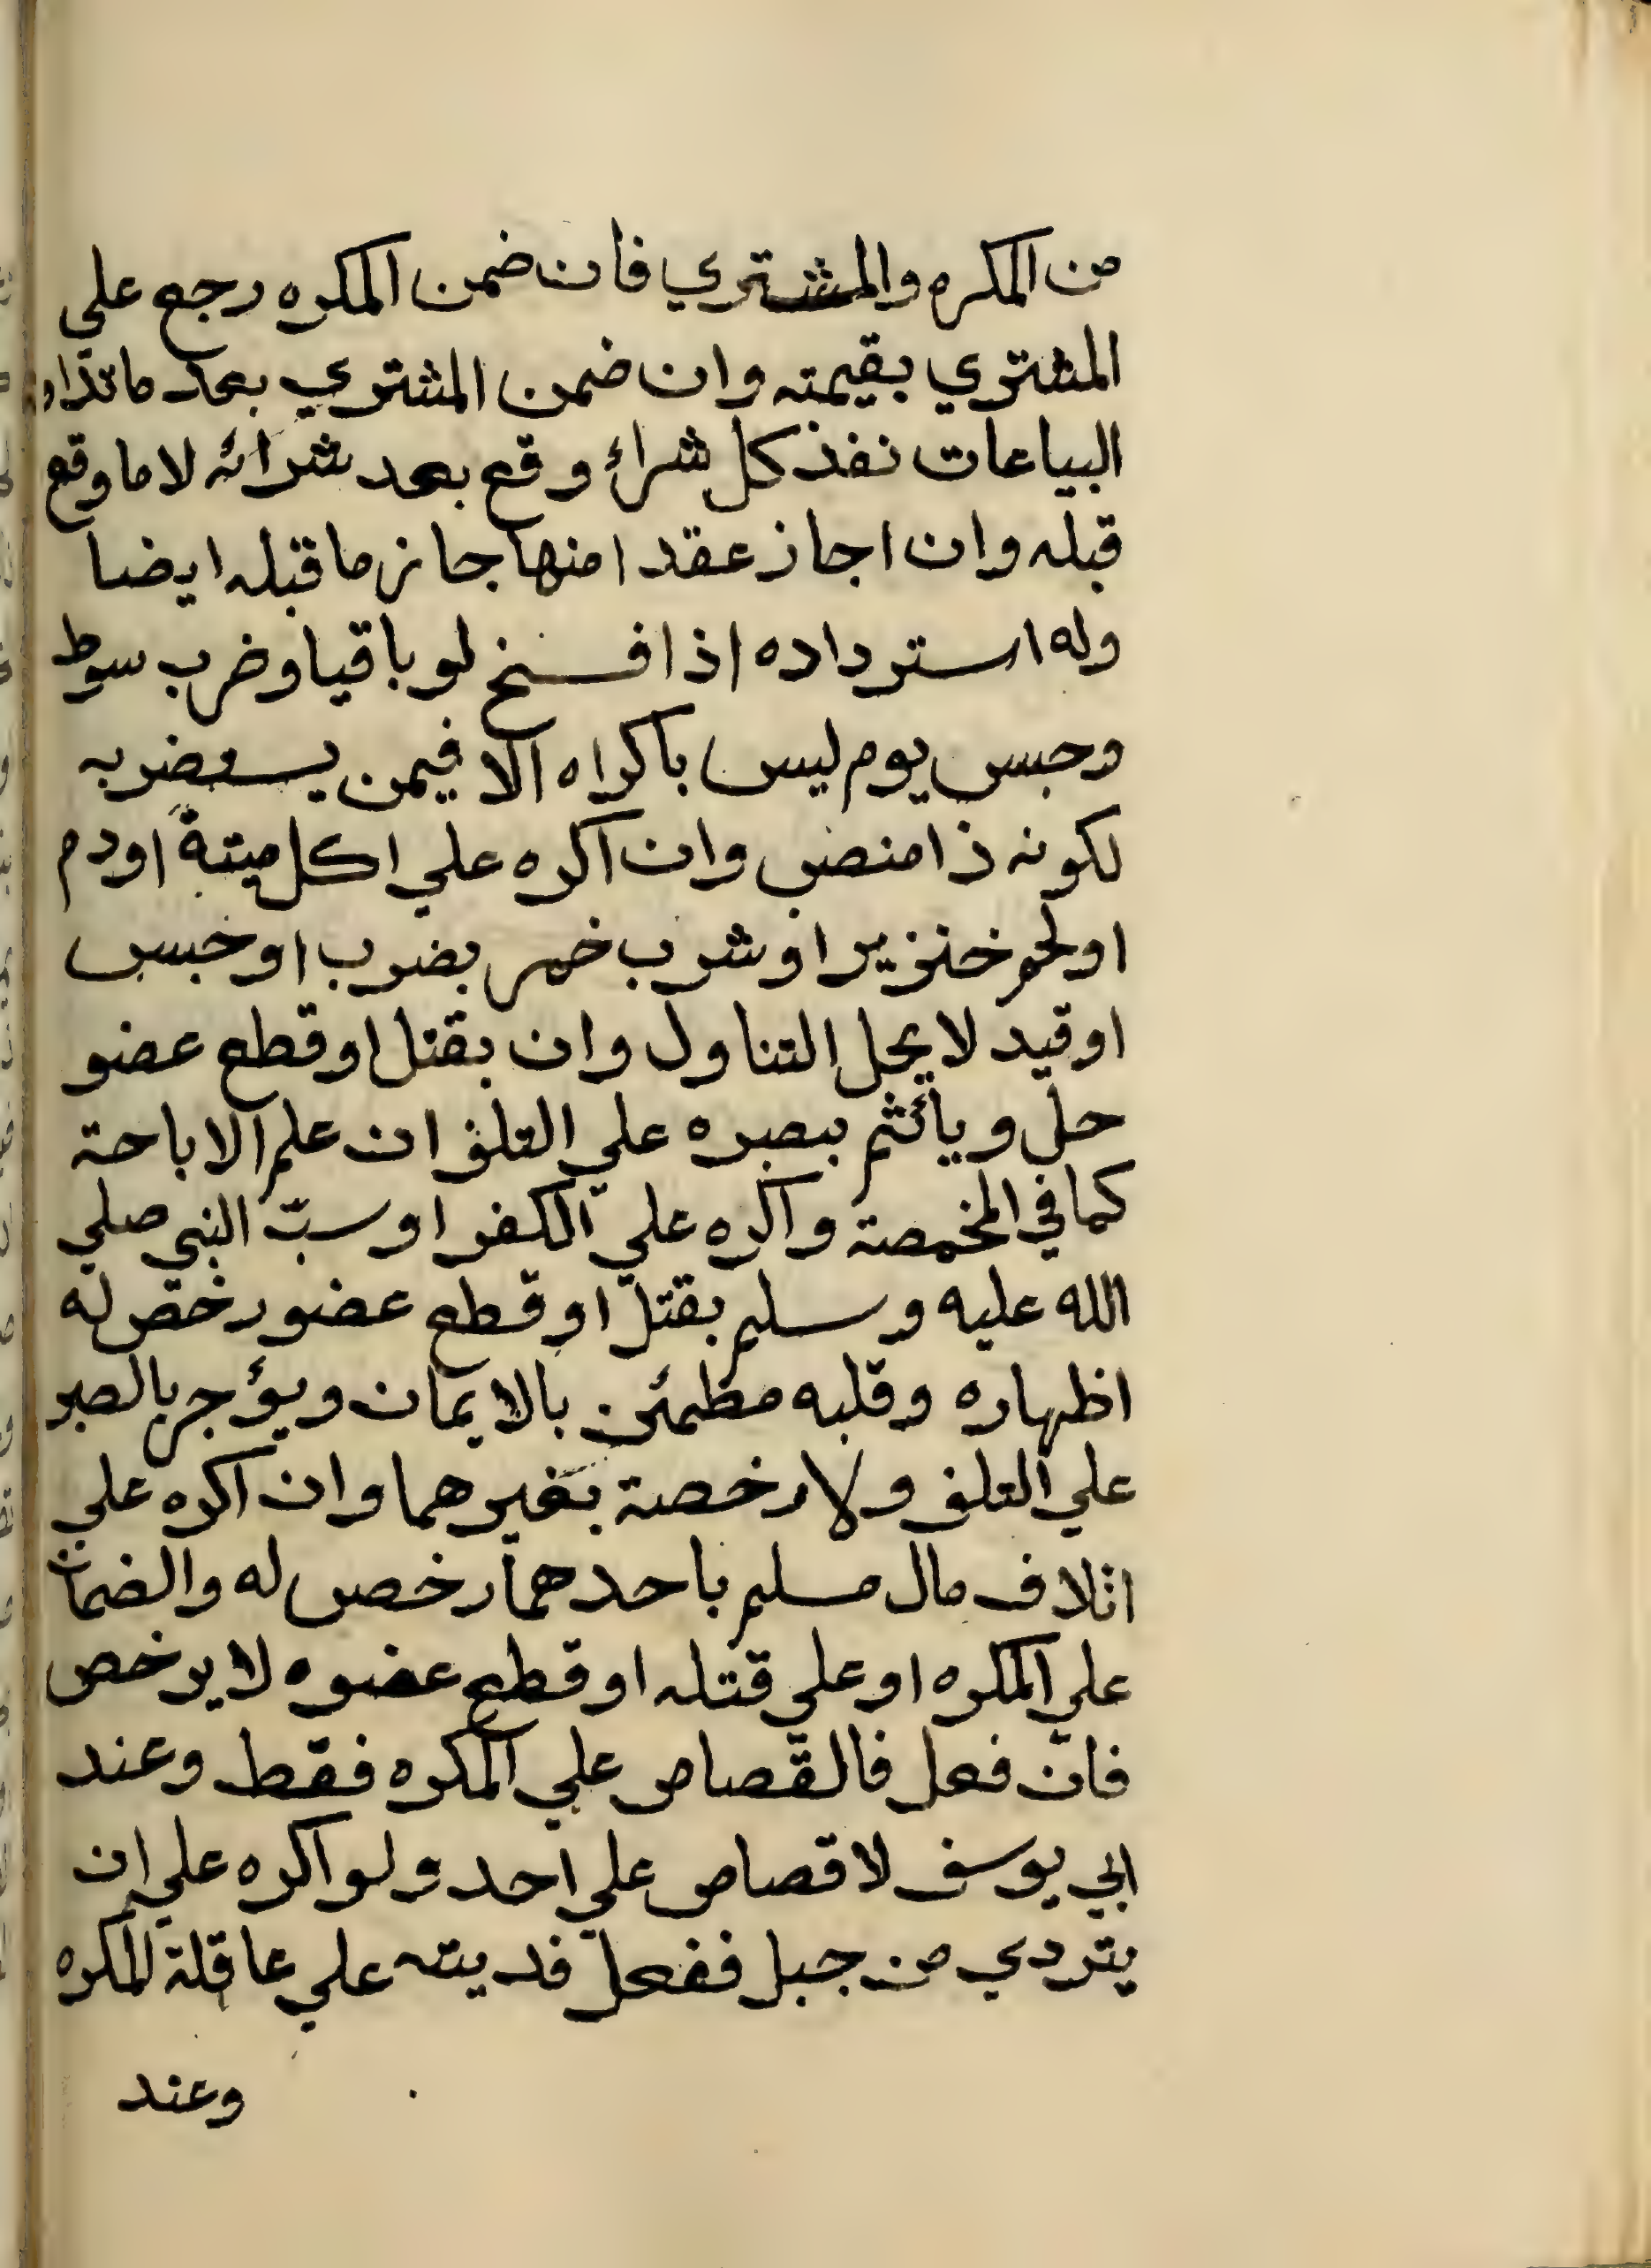 من المكره والمشتري فان ضمن المكره رجع علي
المشتري بقيمته وان ضمن المشتري بعد ما تداو
البياعات نفذ كل شراء وقع بعد شرائه لا ما وقع
قبله وان اجاز عقدا منها جاز ما قبله ايضا
وله استرداده اذا فسخ لو باقيا وضرب سوط
وحبس يوم ليس باكراه الا فيمن يستضربه
لكونه ذا منصب وان اكره علي اكل ميتة او دم
او لحم خنزير او شرب خمر بضرب او حبس
او قيد لا يحل التناول وان بقتل او قطع عضو
حل ويأثم بصبره علي التلف ان علم الاباحة
كما في المخمصة واكره علي الكفر او سبّ النبي صلي
الله عليه وسلم بقتل او قطع عضو رخص له
اظهاره وقلبه مطمئن بالايمان ويؤجر بالصبر
علي التلف ولا رخصة بغيرهما وان اكره علي
اتلاف مال مسلم باحدهما رخص له والضمان
علي المكره او علي قتله او قطع عضوه لا يرخص
فان فعل فالقصاص علي المكره فقط وعند
ابي يوسف لا قصاص علي احد ولو اكره علي ان
يتردي من جبل ففعل فديته علي عاقلة المكره
وعند